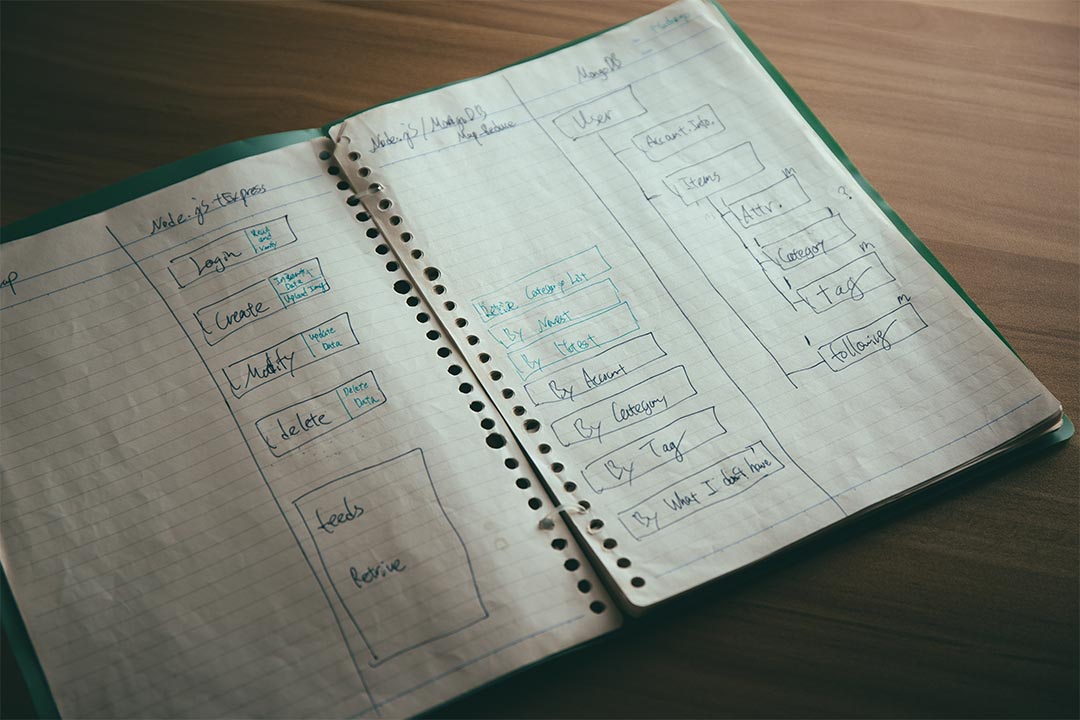 Node.js + Express
Login
Read
and
Verify
Create
Insert
Data
Upload Img
Modify
Update
Data
delete
Delete
Data
feeds
Retrive
Node.js / MongoDB
Map-Reduce
Retrive Category List
By Newest
By
By Account
By Category
By Tag
By What I don't have
MongoDB
User
Accant. Info.
Items
m
Attr.
?
Category
m
Tag
m
following